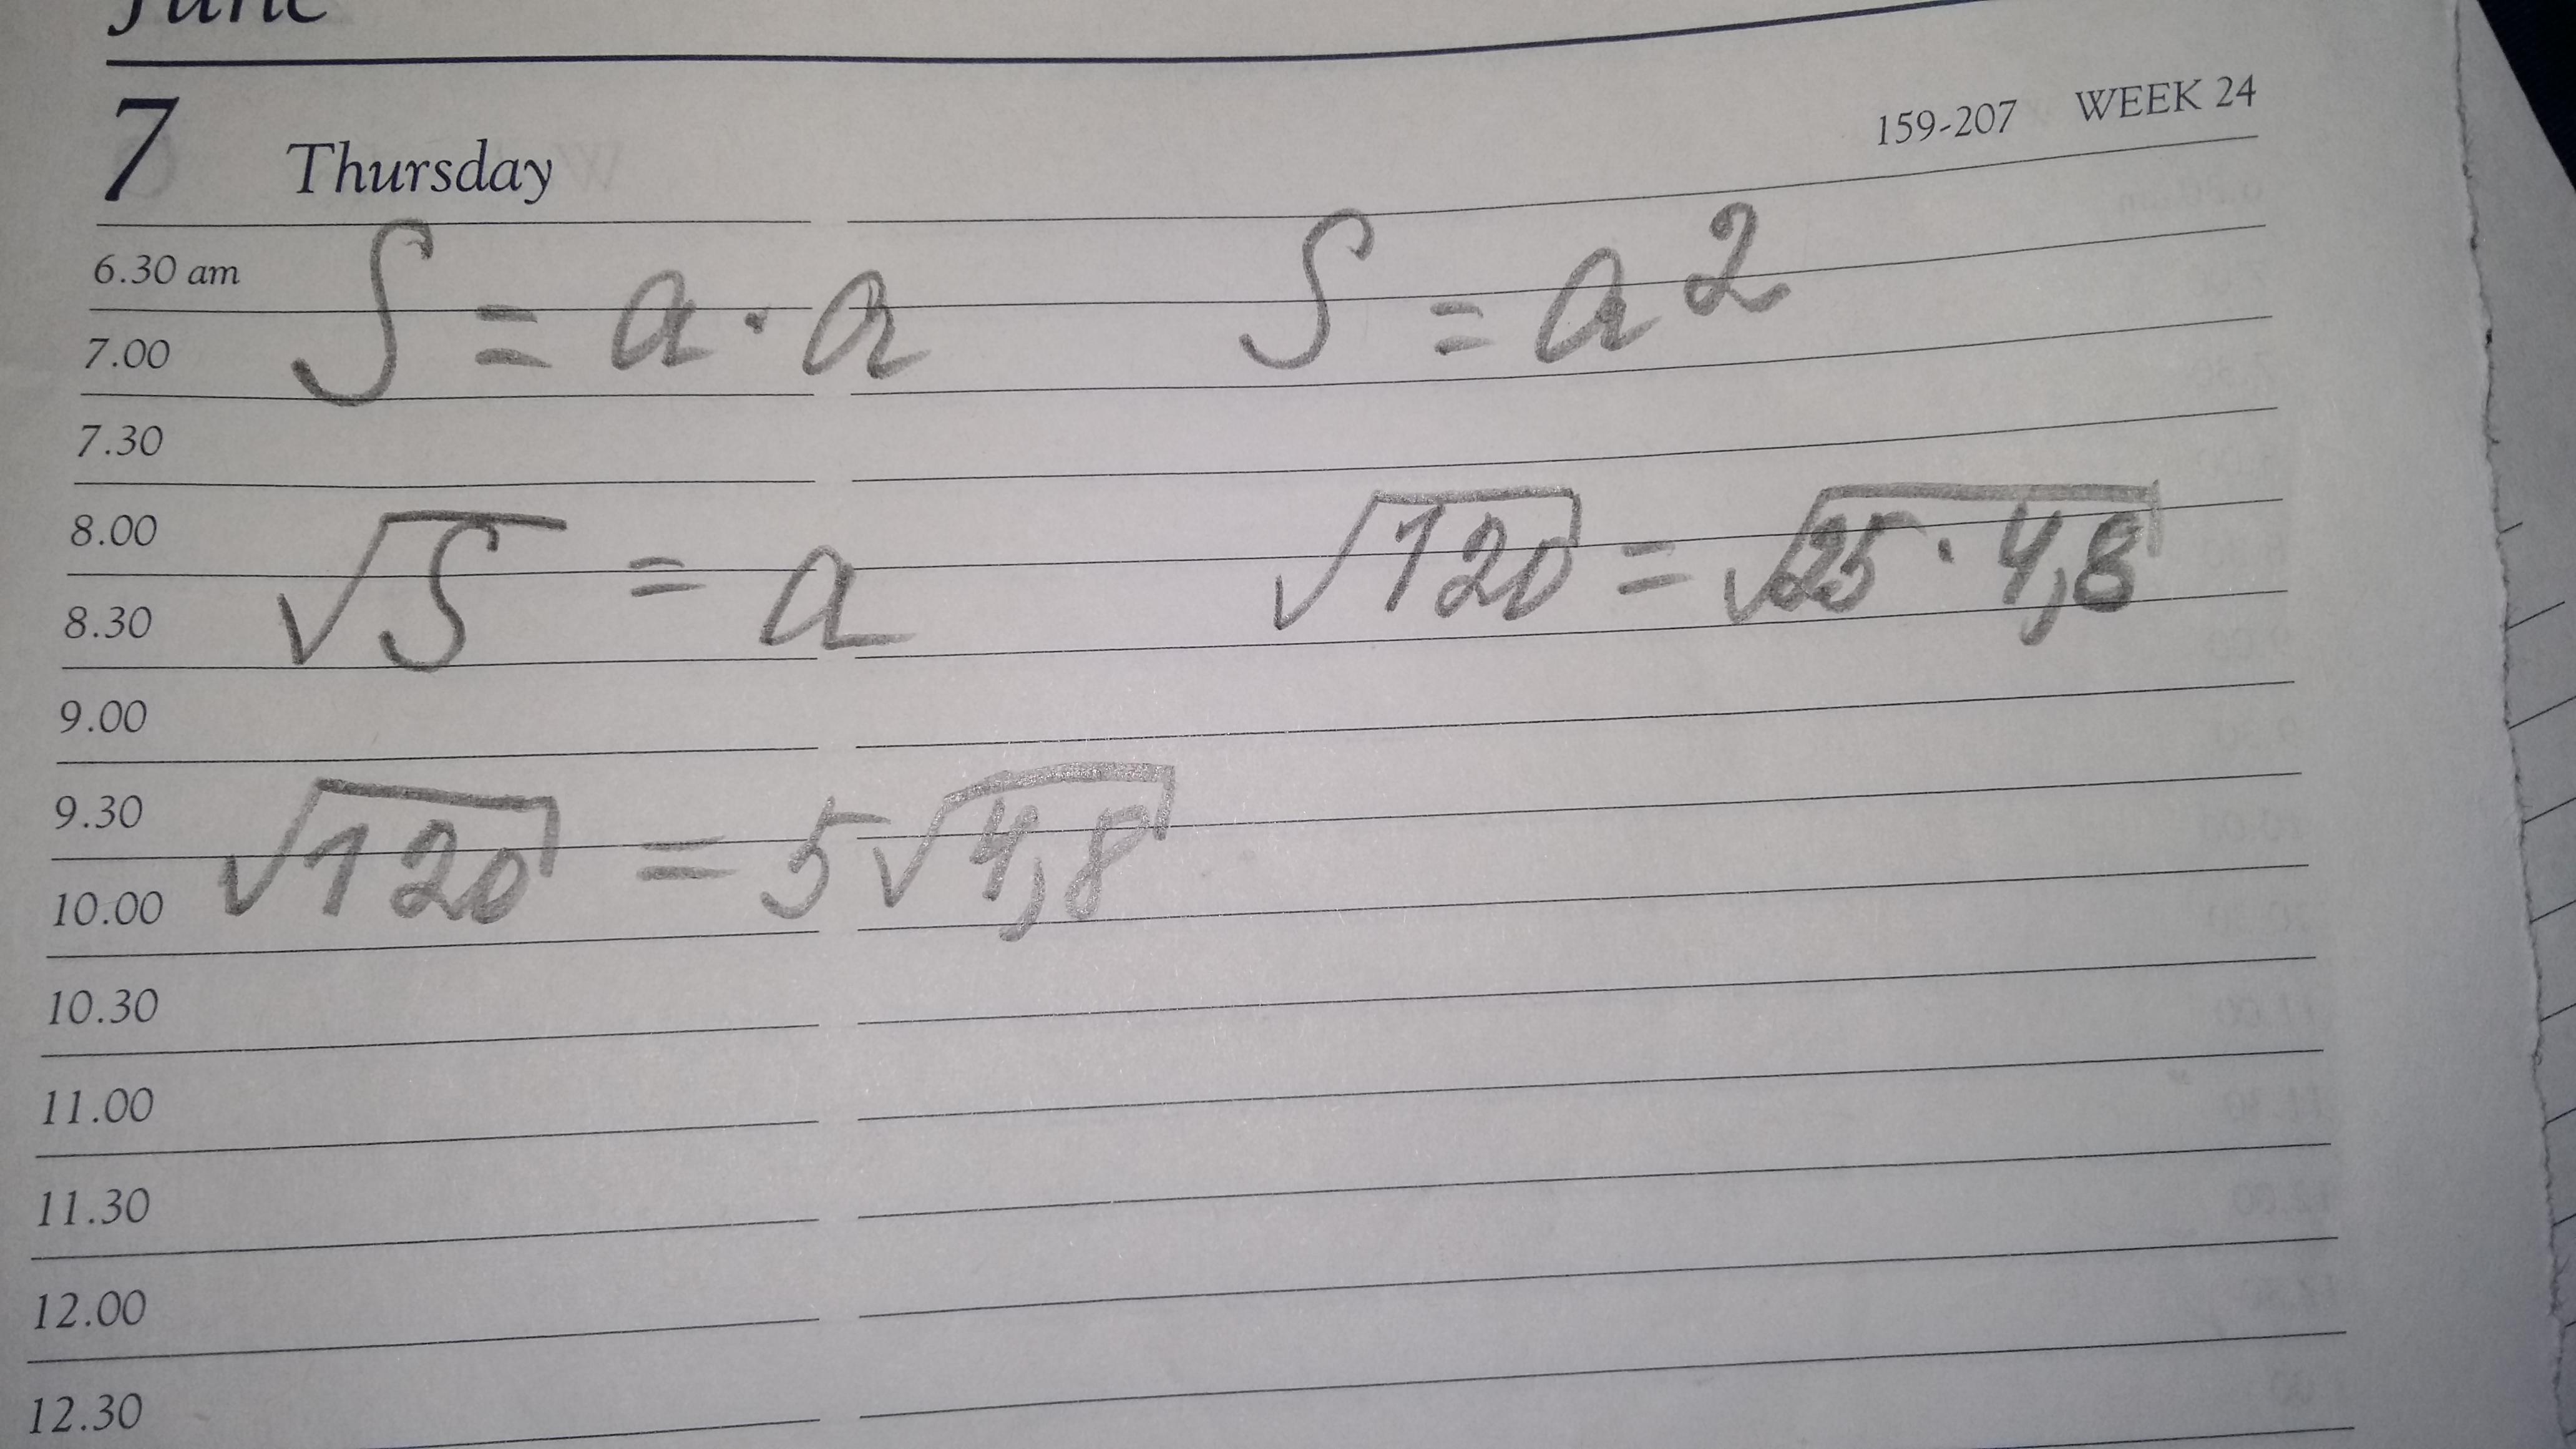 June
7 Thursday 159-207 WEEK 24
6.30 am
S = a · a S = a²
7.00
7.30
8.00
√S = a √120 = √25 · 4,8
8.30
9.00
9.30
√120 = 5√4,8
10.00
10.30
11.00
11.30
12.00
12.30